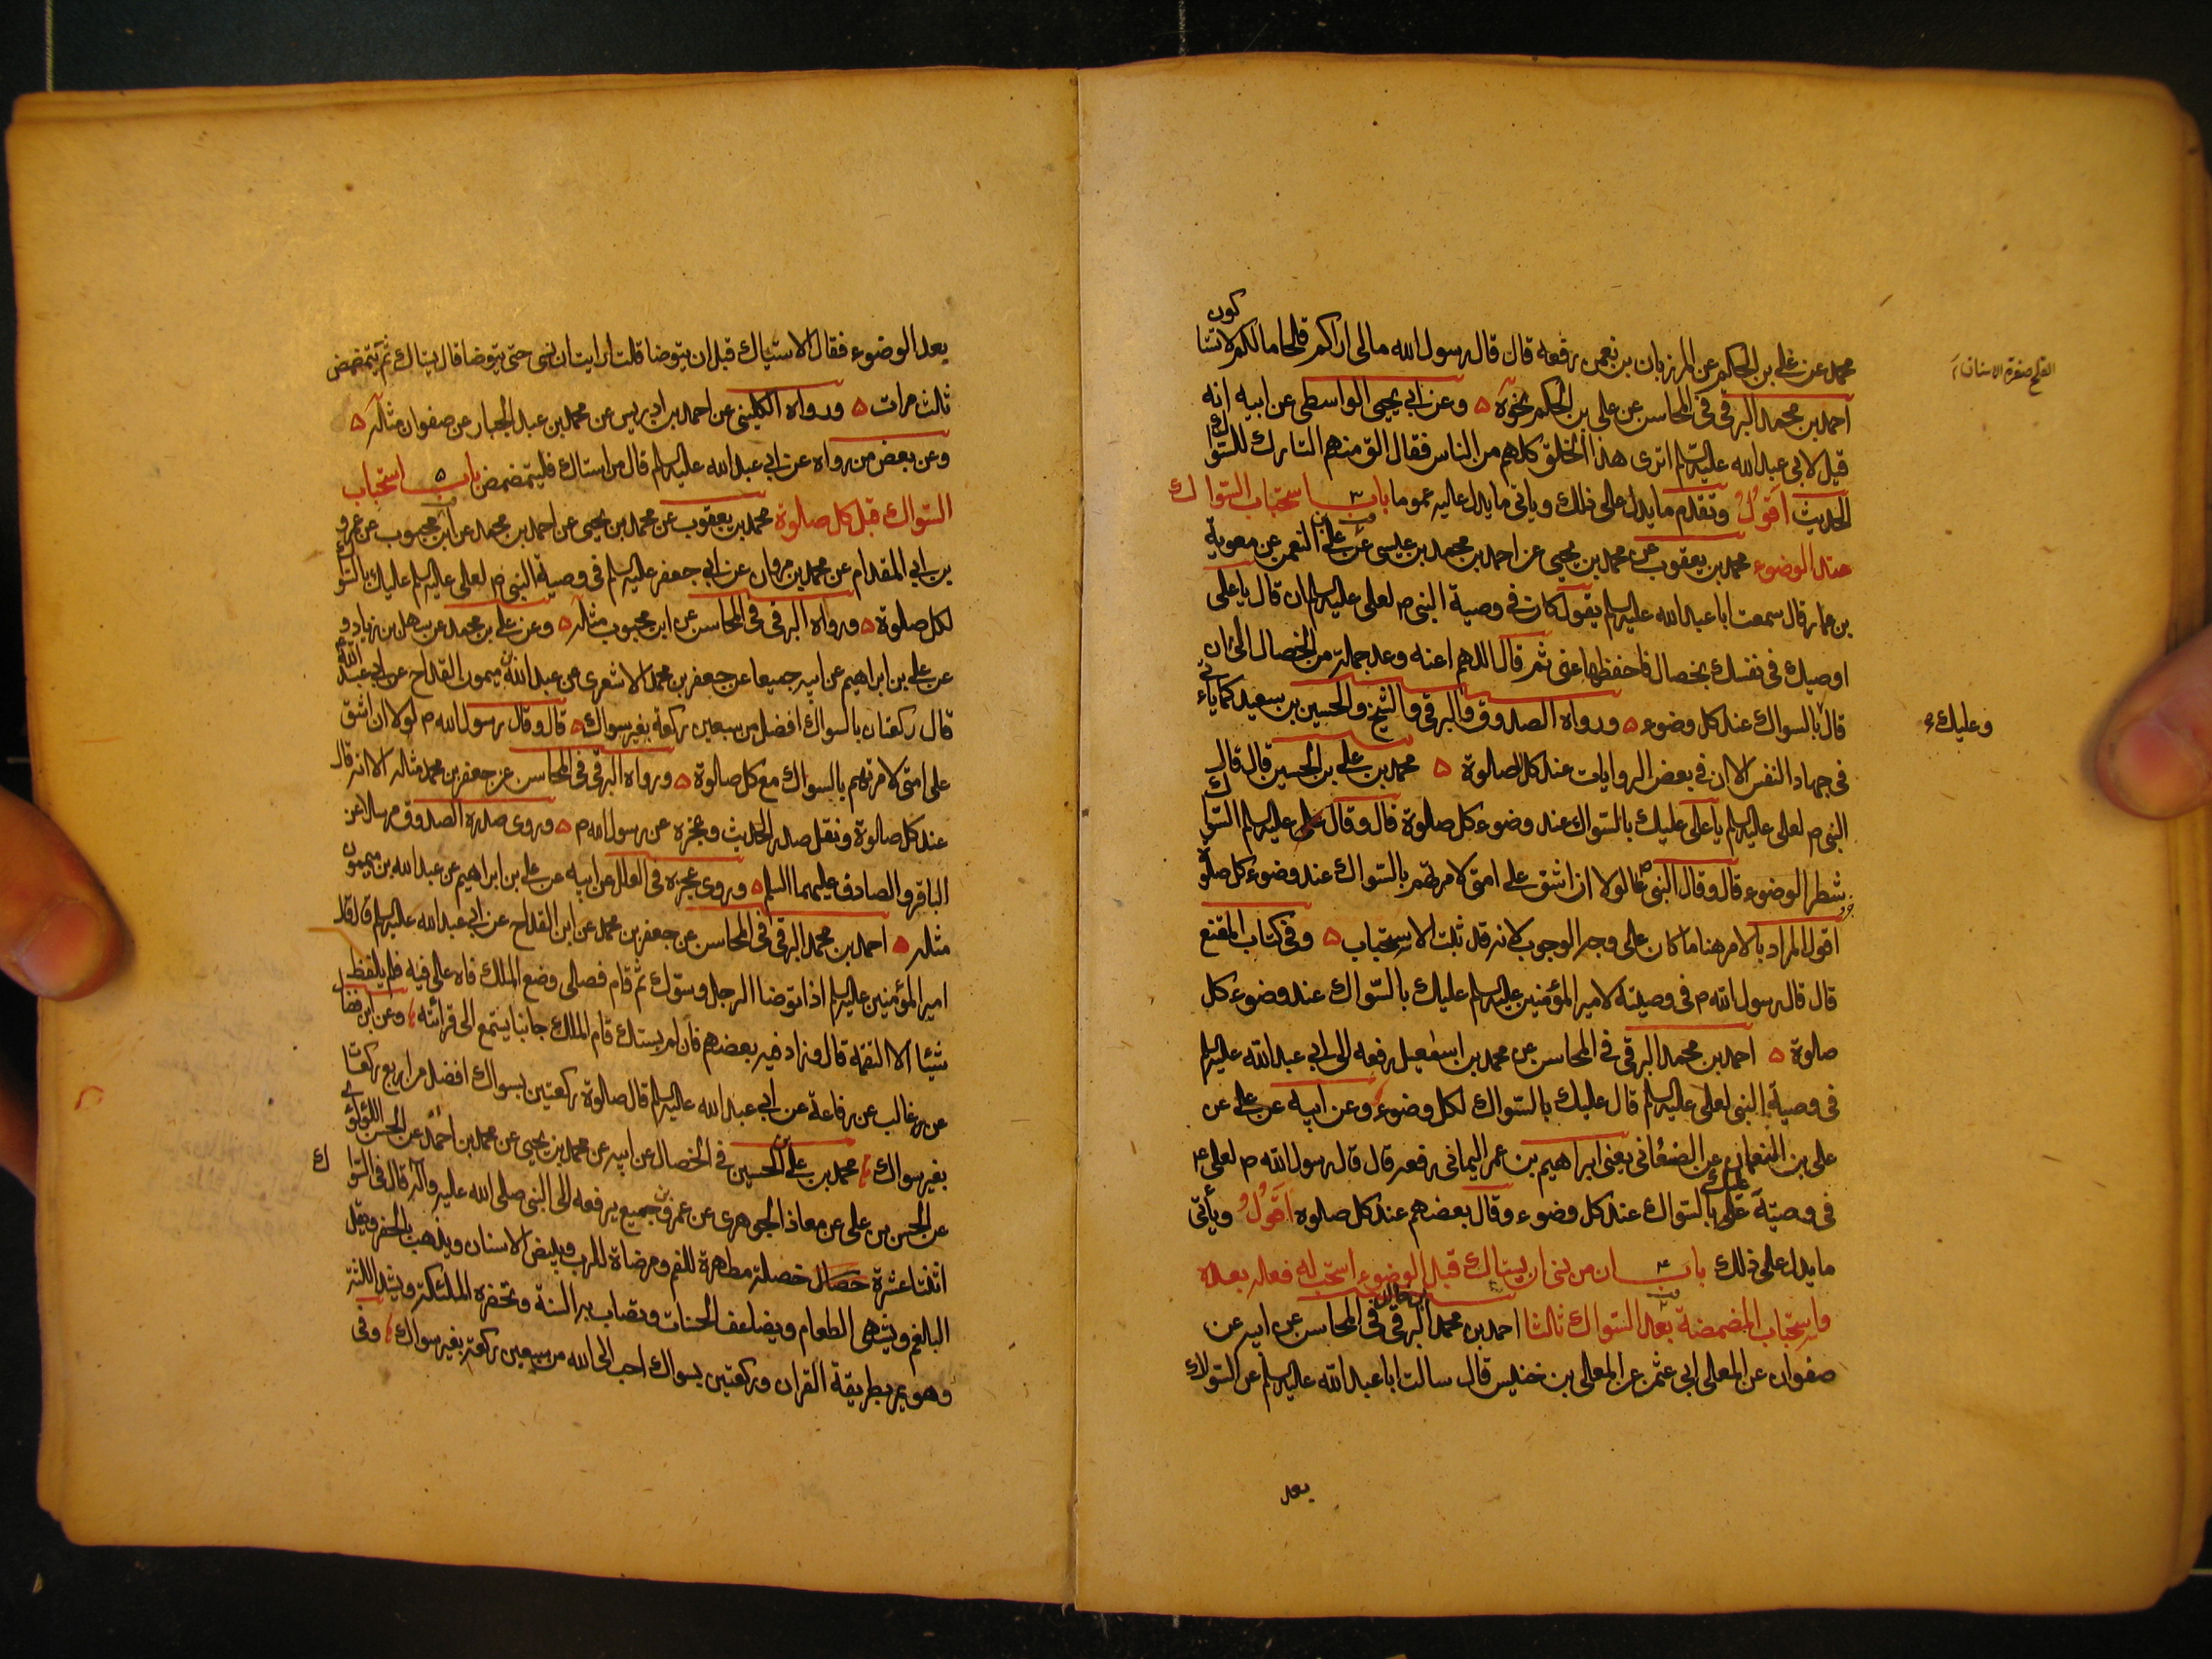 محمد عن على بن الحكم عن المرزبان بن نعمن رفعه قال قال رسول الله مالى اراكم قلحا مالكم لاتستاكون
القلح صفرة الاسنان
احمد بن محمد البرقى فى المحاسن عن على بن الحكم نحوه وعن ابى يحيى الواسطى عن ابيه انه
قيل لابى عبد الله عليه السلم اترى هذا الخلق كلهم من الناس فقال الق منهم التارك للسواك
الحديث اقول وتقدم ما يدل على ذلك وياتى ما يدل عليه عموما باب ٣ استحباب السواك
عند الوضوء محمد بن يعقوب عن محمد بن يحيى عن احمد بن محمد بن عيسى عن على بن النعمن عن معوية
بن عمار قال سمعت ابا عبد الله عليه السلم يقول كان فى وصية النبى ص لعلى عليه السلم ان قال يا على
اوصيك فى نفسك بخصال فاحفظها عنى ثم قال اللهم اعنه وعد جملة من الخصال الى ان
قال بالسواك عند كل وضوء ورواه الصدوق والبرقى والشيخ والحسين بن سعيد كما ياتى
وعليك
فى جهاد النفس الا ان فى بعض الروايات عند كل صلوة محمد بن على بن الحسين قال قال
النبى ص لعلى عليه السلم يا على عليك بالسواك عند وضوء كل صلوة قال وقال على عليه السلم السواك
شطر الوضوء قال وقال النبى ص لولا ان اشق على امتى لامرتهم بالسواك عند وضوء كل صلوة
اقول المراد بالامر هنا ما كان على وجه الوجوب لانه قد ثبت الاستحباب وفى كتاب المقنع
قال قال رسول الله ص فى وصيته لامير المؤمنين عليه السلم عليك بالسواك عند وضوء كل
صلوة احمد بن محمد البرقى فى المحاسن عن محمد بن اسمعيل رفعه الى ابى عبد الله عليه السلم
فى وصية النبى لعلى عليه السلم قال عليك بالسواك لكل وضوء وعن ابيه عن على عن
على بن النعمان عن الصنعانى يعنى ابراهيم بن عمر اليمانى رفعه قال قال رسول الله ص لعلى ع
فى وصيته عليك بالسواك عند كل وضوء وقال بعضهم عند كل صلوه اقول ويأتى
ما يدل على ذلك باب ٤ ان من نسى ان يستاك قبل الوضوء استحب له فعله بعده
واستحباب المضمضة بعد السواك ثلاثا احمد بن محمد بن خالد البرقى فى المحاسن عن ابيه عن
صفوان عن المعلى ابى عثمن عن المعلى بن خنيس قال سالت ابا عبد الله عليه السلم عن السواك
بعد
بعد الوضوء فقال الاستياك قبل ان يتوضا قلت ارايت ان نسى حتى يتوضا قال يستاك ثم يتمضمض
ثلث مرات ورواه الكلينى عن احمد بن ادريس عن محمد بن عبد الجبار عن صفوان مثله
وعن بعض من رواه عن ابى عبد الله عليه السلم قال من استاك فليتمضمض باب ٥ استحباب
السواك قبل كل صلوة محمد بن يعقوب عن محمد بن يحيى عن احمد بن محمد عن ابن محبوب عن عمرو
بن ابى المقدام عن محمد بن مروان عن ابى جعفر عليه السلم فى وصية النبى ص لعلى عليه السلم عليك بالسواك
لكل صلوة ورواه البرقى فى المحاسن عن ابن محبوب مثله وعن على بن محمد عن سهل بن زياد و
عن على بن ابراهيم عن ابيه جميعا عن جعفر بن محمد الاشعرى عن عبد الله بن ميمون القداح عن ابى عبد الله ع
قال ركعتان بالسواك افضل من سبعين ركعة بغير سواك قال وقال رسول الله ص لولا ان اشق
على امتى لامرتهم بالسواك مع كل صلوة ورواه البرقى فى المحاسن عن جعفر بن محمد مثله الا انه قال
عند كل صلوة ونقل صدر الحديث وعجزه عن رسول الله ص وروى صدره الصدوق مرسلا عن
الباقر والصادق عليهما السلم وروى عجزه فى العلل عن ابيه عن على بن ابراهيم عن عبد الله بن ميمون
مثله احمد بن محمد البرقى فى المحاسن عن جعفر بن محمد عن ابن القداح عن ابى عبد الله عليه السلم قال قال
امير المؤمنين عليه السلم اذا توضا الرجل وسوك ثم قام فصلى وضع الملك فاه على فيه فلم يلفظ
شيئا الا التقمه قال وزاد فيه بعضهم فان لم يستك قام الملك جانبا يستمع الى قرائته وعن ابن فضال
عن غالب عن رفاعة عن ابى عبد الله عليه السلم قال صلوة ركعتين بسواك افضل من اربع ركعات
بغير سواك محمد بن على بن الحسين فى الخصال عن ابيه عن محمد بن يحيى عن محمد بن احمد عن الحسن اللؤلؤى
عن الحسن بن على عن معاذ الجوهرى عن عمرو بن جميع يرفعه الى النبى صلى الله عليه وآله قال فى السواك
اثنتا عشرة خصلة مطهرة للفم ومرضاة للرب ويبيض الاسنان ويذهب بالحفر ويقل
البلغم ويشهى الطعام ويضاعف الحسنات وتصاب به السنة وتحضره الملئكة ويشد اللثة
وهو يمر بطريقة القران وركعتين بسواك احب الى الله من سبعين ركعة بغير سواك وفى